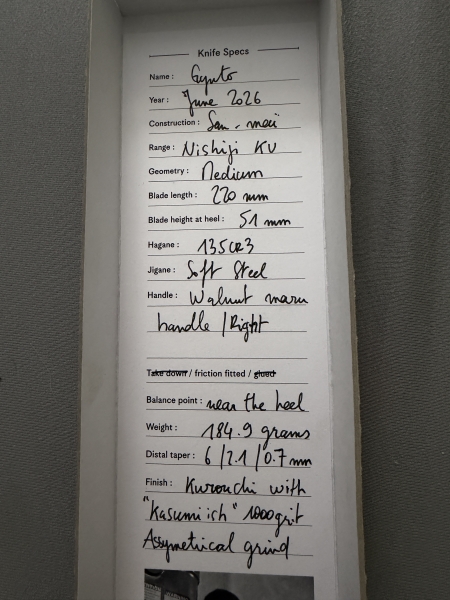 Knife Specs
Name : Gyuto
Year : June 2026
Construction : San-maï
Range : Nishiji KU
Geometry : Medium
Blade length : 220 mm
Blade height at heel : 51 mm
Hagane : 135CR3
Jigane : Soft Steel
Handle : Walnut maru
handle / Right
Take down / friction fitted / glued
Balance point : near the heel
Weight : 184.9 grams
Distal taper : 6 / 2.1 / 0.7 mm
Finish : Kurouchi with
"Kasumi ish" 1000 grit
Assymetrical grind